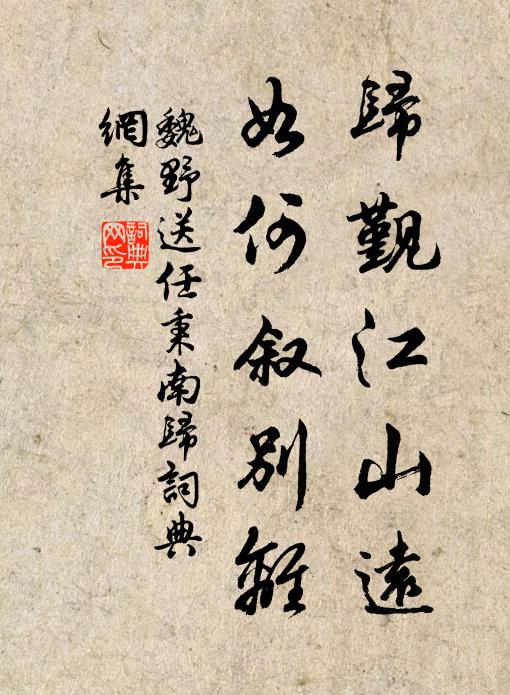 歸覲江山遠
如何叙別離
魏野送任秉南歸詞典
網集
詞典
网印